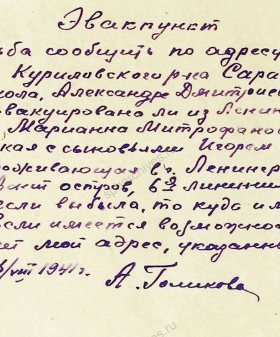 Эвакпункт
ьба сообщить по адресу
Куриловского р-на Сара
кола, Александре Дмитрие
эвакуирована ли из Ленин
Марианна Митрофано
ская с сыновьями Игорем
роживающая в г. Ленингр
вский остров, 6ая линия
если выбыла, то куда и
если имеется возможнос
ит мой адрес, указанны
/VIII 1941г.
А. Голикова